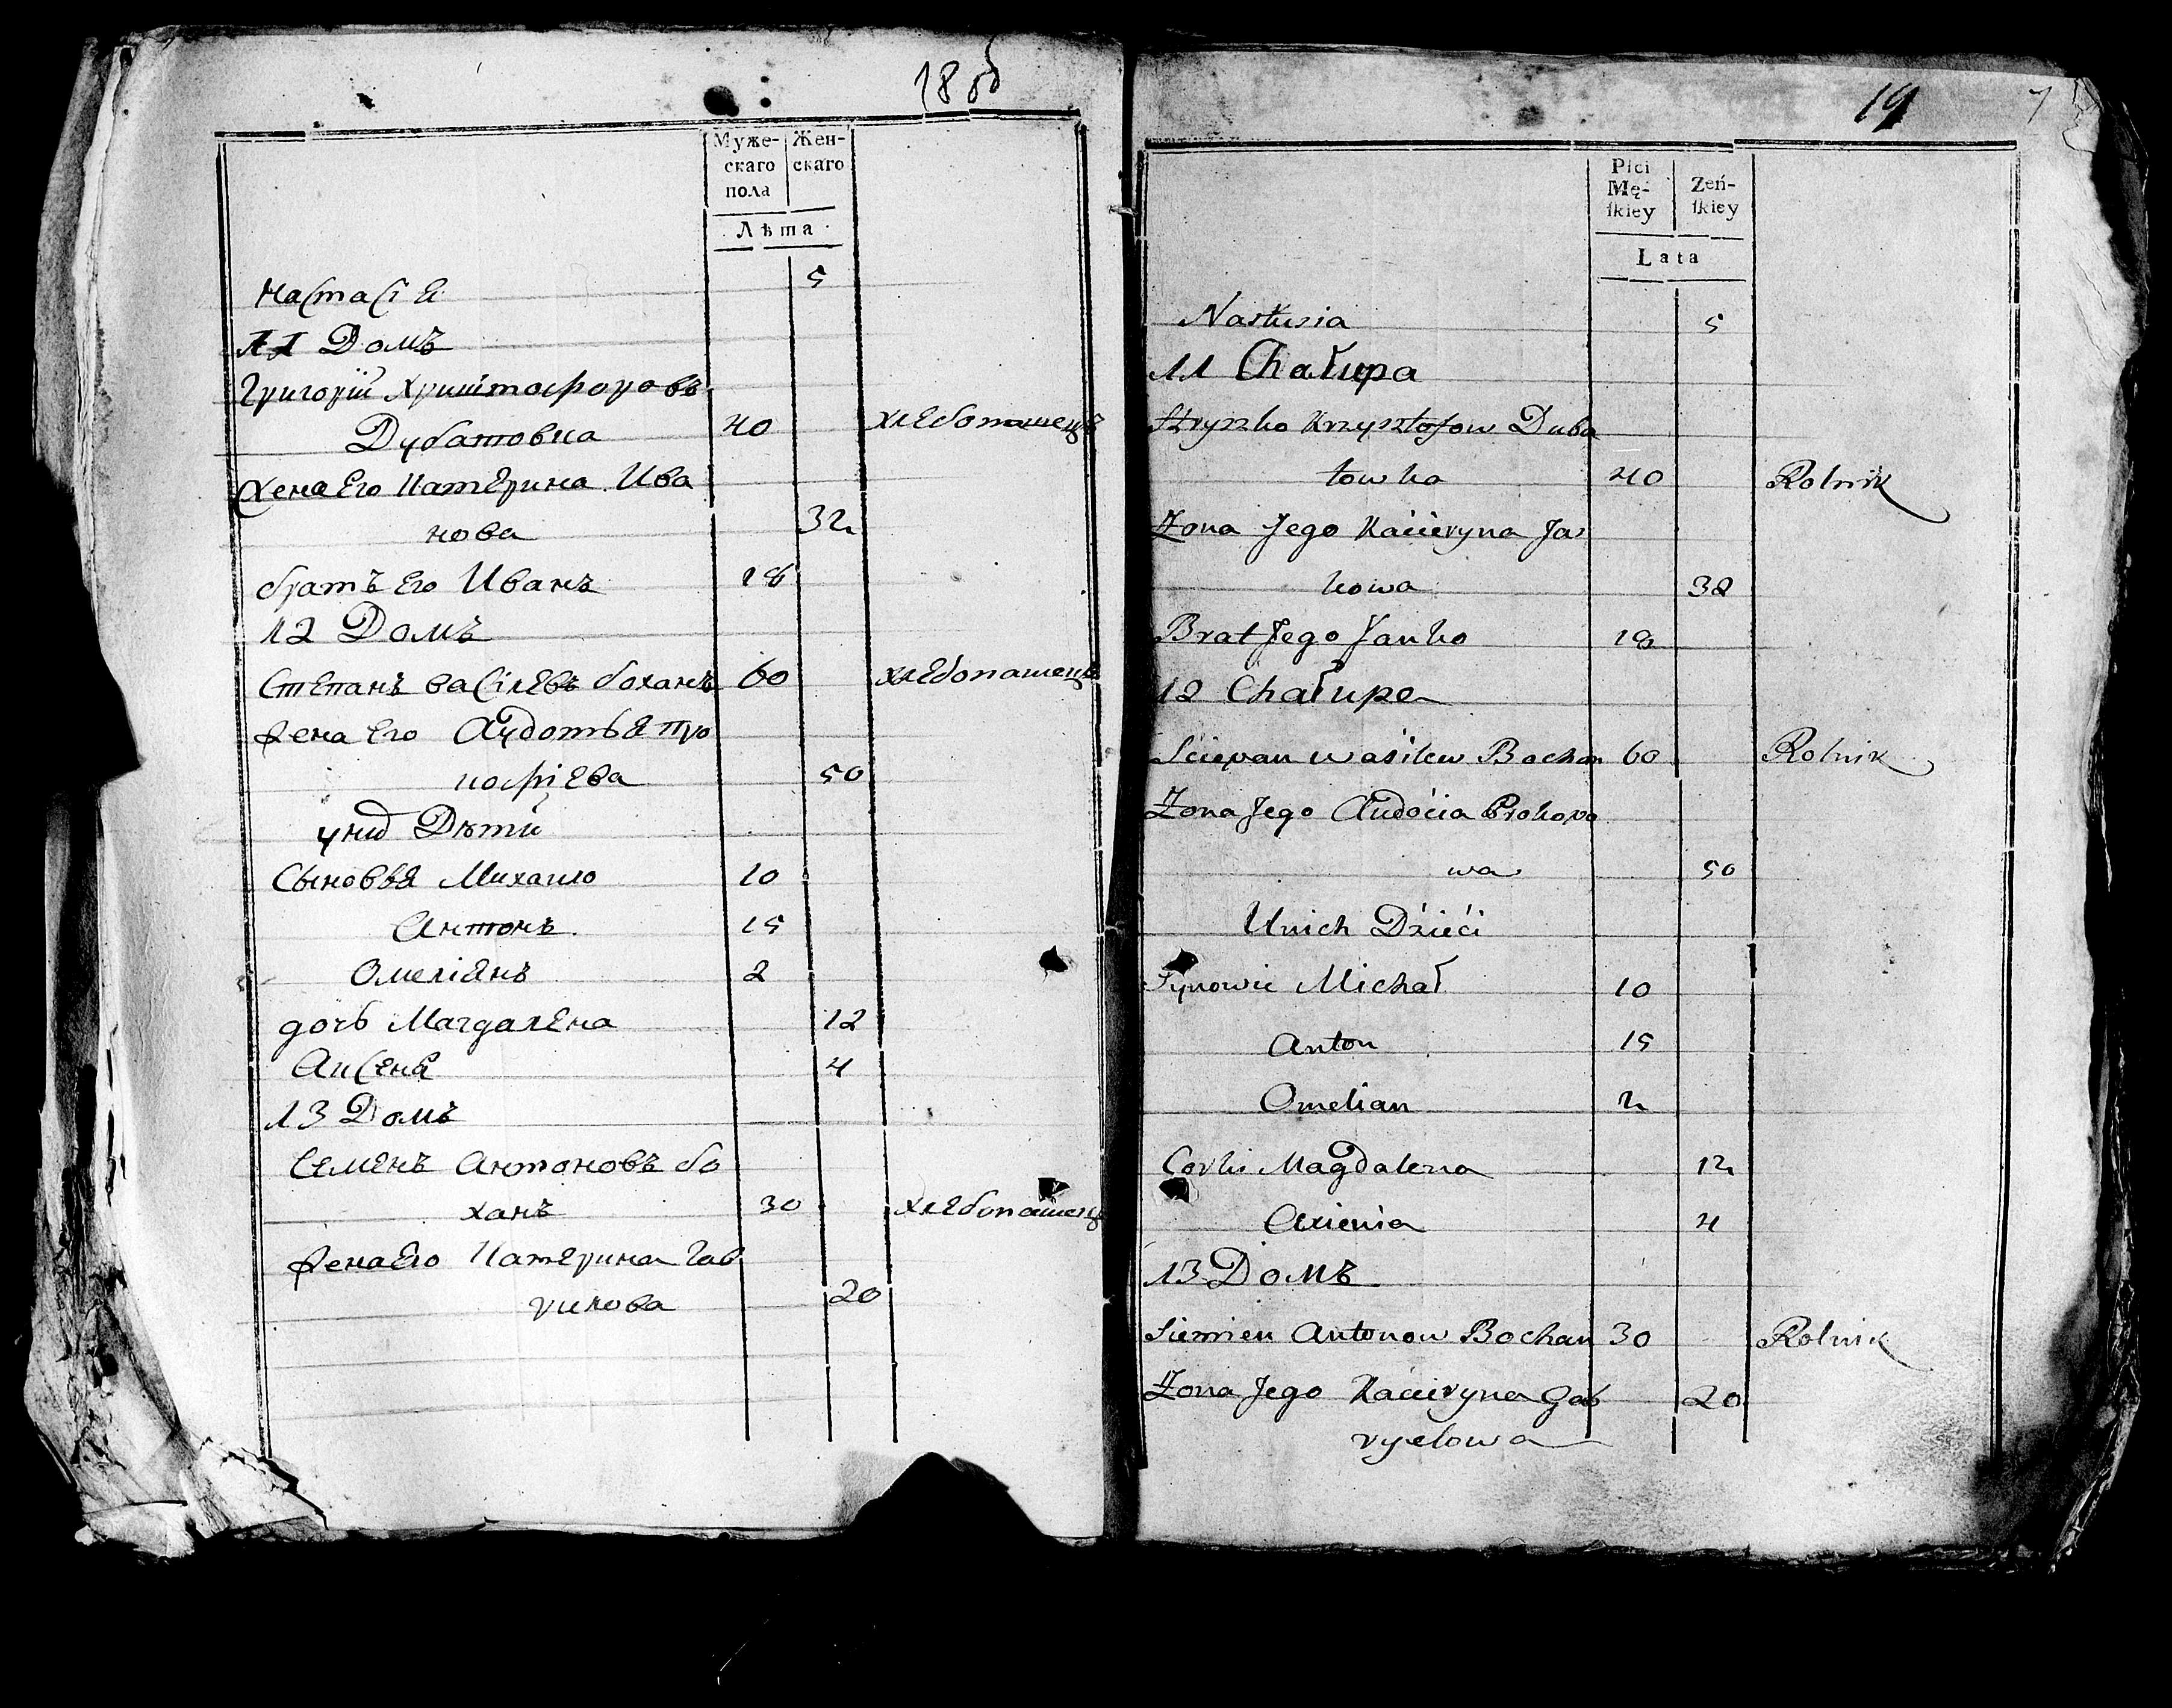 18 об
Муже-
скаго
пола
Жен-
скаго
Лѣта
Настасіе 5
11 Домъ
Григорій Хриштофоровъ
Дубатовка 40 хлебопашецъ
Жена Его Катерина Ива
нова 32
братъ Его Иванъ 18
12 Домъ
Степанъ Васілевъ боханъ 60 хлебопашецъ
жена Его Аудотья Про
кофіева 50
унид Дѣти
Сыновья Михаило 10
Антонъ 15
Омеліянъ 2
дочь Магдалена 12
Аксеня 4
13 Домъ
Семенъ Антоновъ бо
ханъ 30 хлебопашец
жена Его Катерина Гав
рилова 20
19
Płci
Mę-
ſkiey
Zeń-
ſkiey
Lata
Nastusia 5
11 Chałupa
Hryszko Krzysztofow Duba
towka 40 Rolnik
Żona Jego Kacieryna Ja
kowa 32
Brat Jego Janko 18
12 Chałupa
Sciepan Wasilew Bochan 60 Rolnik
Żona Jego Audocia Prokopo
wa 50
Unich Dzieci
Synowie Michał 10
Anton 15
Omelian 2
Corki Magdalena 12
Axienia 4
13 Домъ
Siemien Antonow Bochan 30 Rolnik
Żona Jego Kacieryna Gab 20
ryelowa